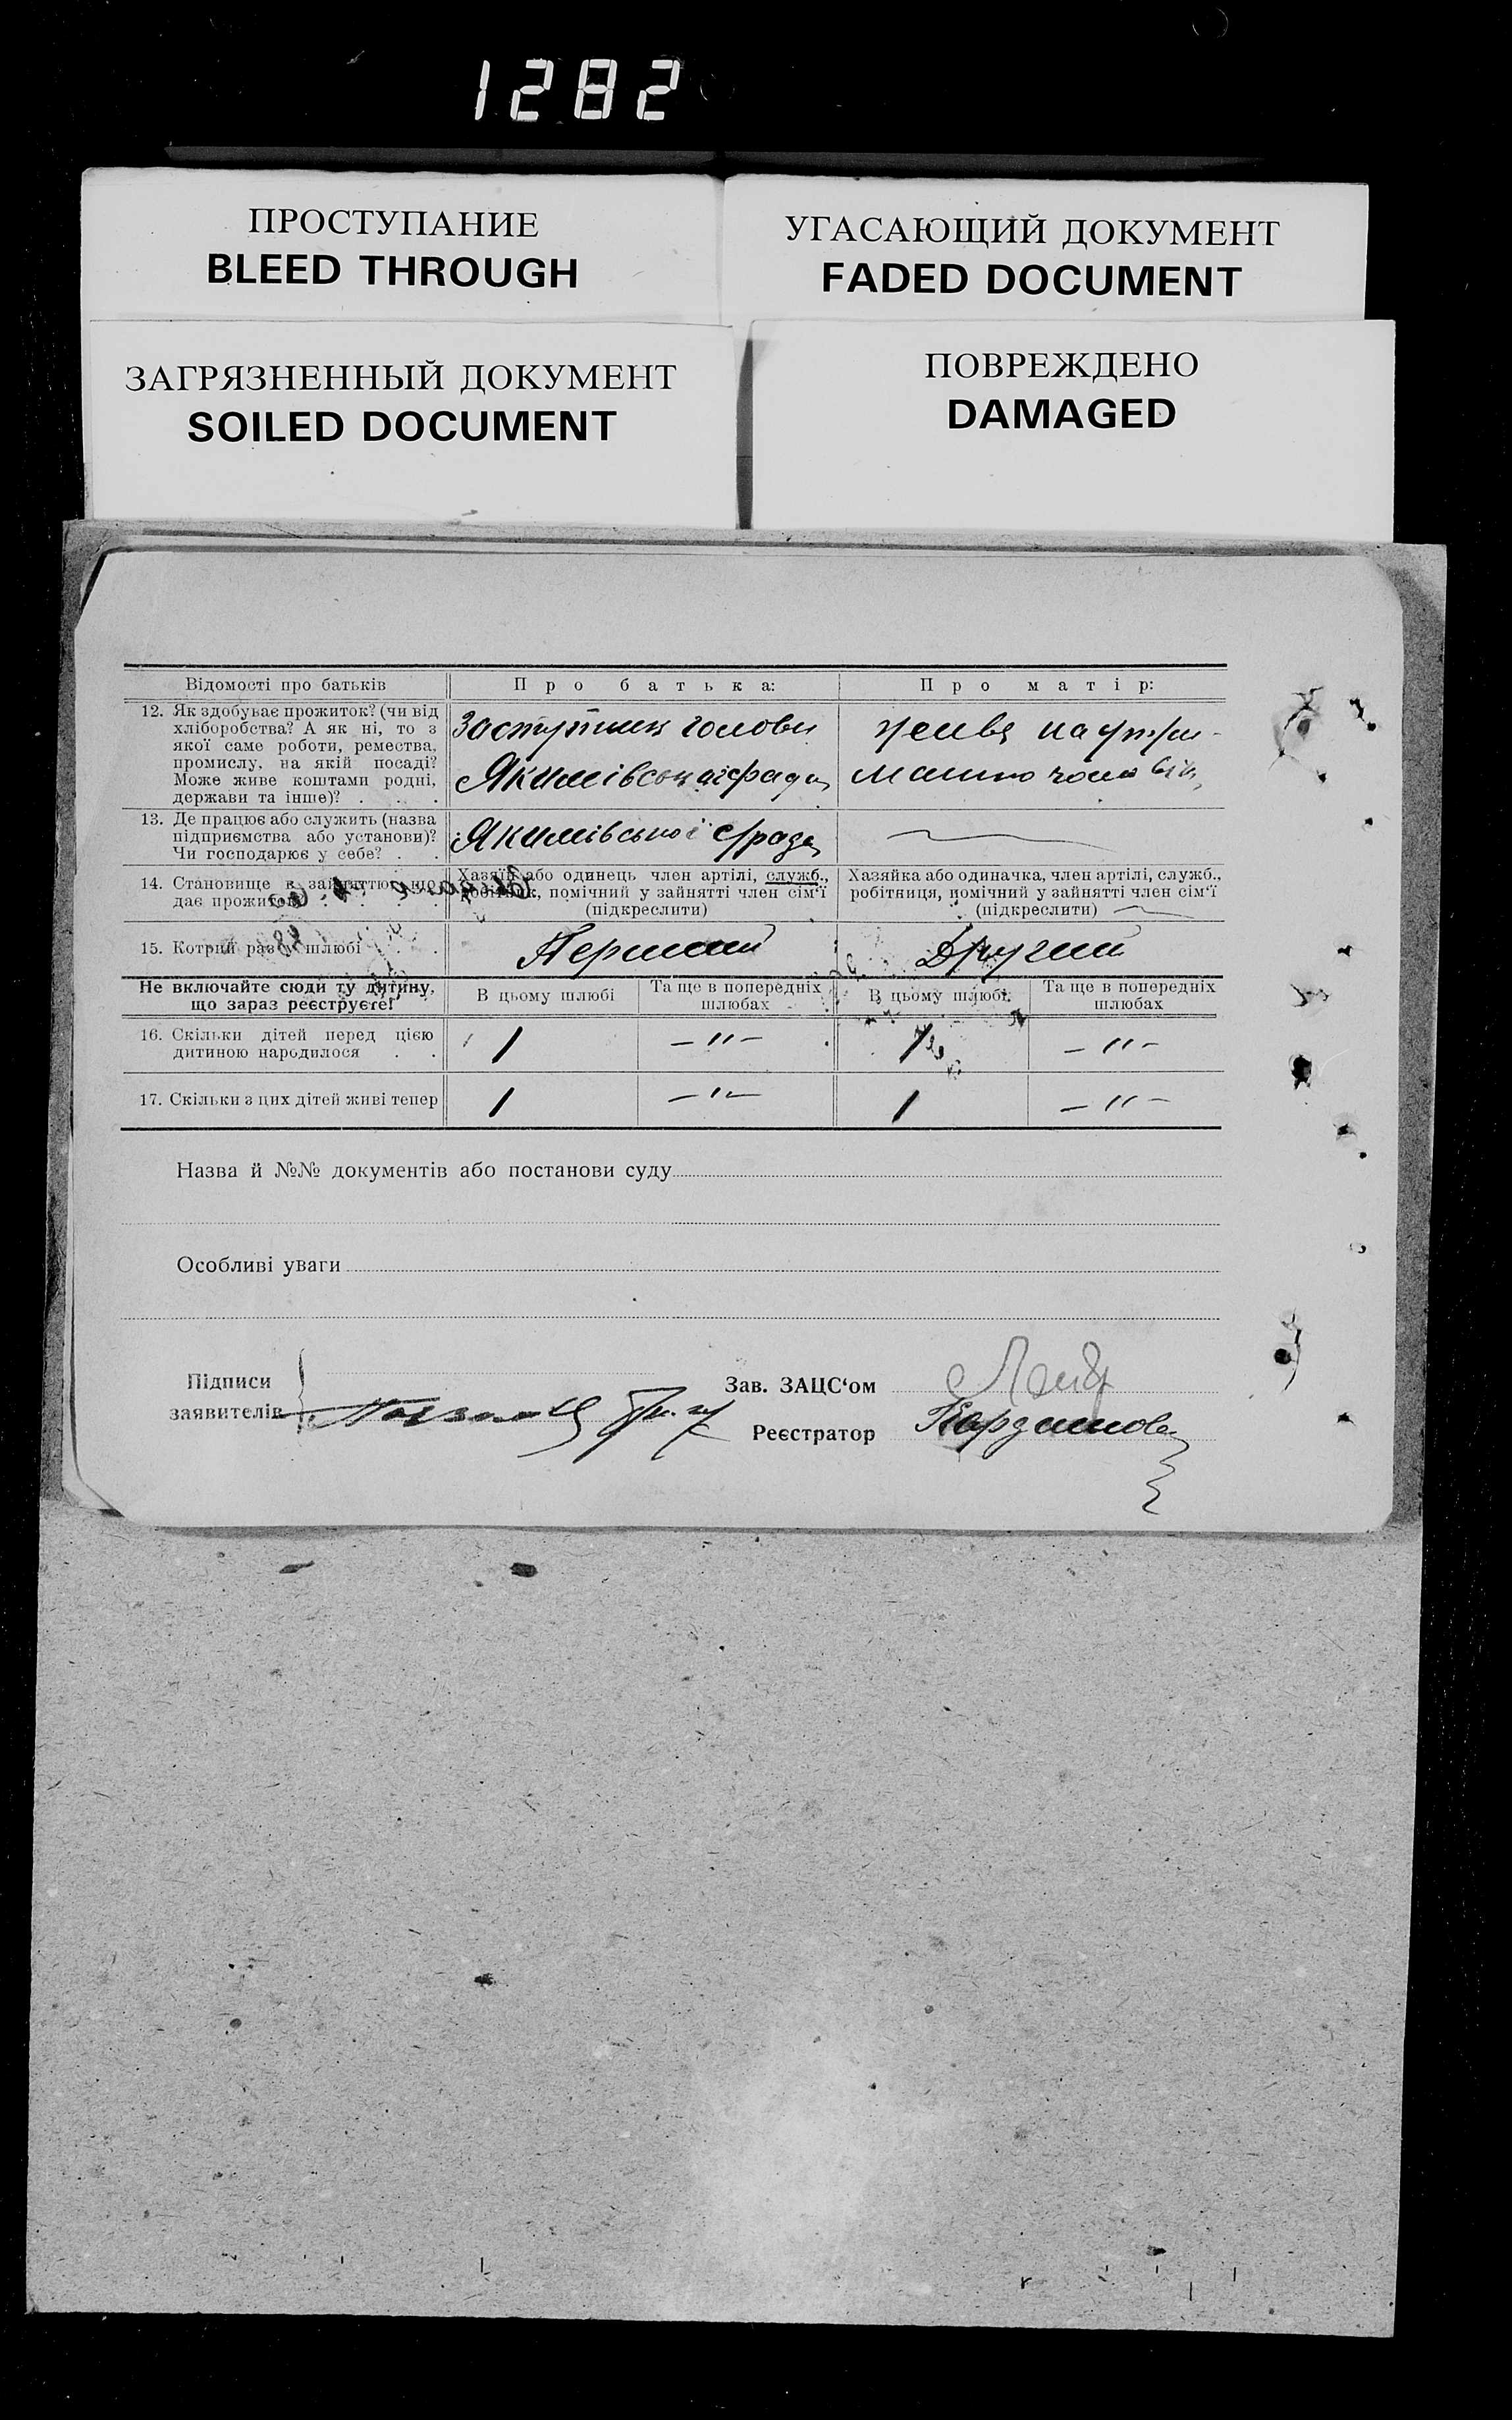 1282
ПРОСТУПАНИЕ
BLEED THROUGH
УГАСАЮЩИЙ ДОКУМЕНТ
FADED DOCUMENT
ЗАГРЯЗНЕННЫЙ ДОКУМЕНТ
SOILED DOCUMENT
ПОВРЕЖДЕНО
DAMAGED
Відомості про батьків
Про батька:
Про матір:
12. Як здобуває прожиток? (чи від
хліборобства? А як ні, то з
якої саме роботи, ремества,
промислу, на якій посаді?
Може живе коштами родні,
держави та інше)? . . .
Заступник голови
Якимівської с/ради
живе на утри-
манню чоловіка
13. Де працює або служить (назва
підприємства або установи)?
Чи господарює у себе? . .
Якимівської с/рада
14. Становище в заняттю, що
дає прожиток . . . . .
Хазяїн або одинець член артілі, служб.,
робітник, помічний у зайнятті член сім'ї
(підкреслити)
Хазяйка або одиначка, член артілі, служб.,
робітниця, помічний у зайнятті член сім'ї
(підкреслити)
15. Котрий раз у шлюбі . . .
Перший
Другий
Не включайте сюди ту дитину,
що зараз реєструєте!
В цьому шлюбі
Та ще в попередніх
шлюбах
В цьому шлюбі
Та ще в попередніх
шлюбах
16. Скільки дітей перед цією
дитиною народилося . .
1
— " —
1
— " —
17. Скільки з цих дітей живі тепер
1
— " —
1
— " —
Назва й №№ документів або постанови суду
Особливі уваги
Підписи
заявителів
Зав. ЗАЦС'ом
Реєстратор